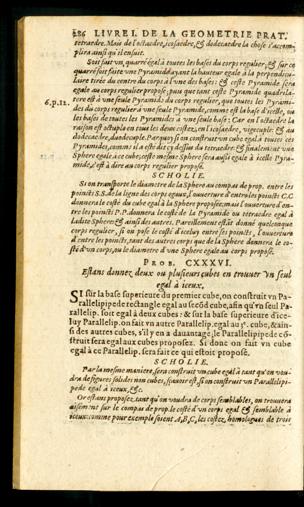 286 LIVRE I. DE LA GEOMETRIE PRAT.
tetraedre. Mais de l'octaedre, icosaedre, & dodecaedre la chose s'accom-
plira ainsi qu'il ensuit.
Soit fait vn quarré égal à toutes les bases du corps regulier, & sur ce
quarré soit faite vne Pyramide ayant la hauteur egale à la perpendicu-
laire tirée du centre du corps à l'vne des bases, & cette Pyramide sera
egale au corps regulier proposé; puis que tant ceste Pyramide quadrila-
6.p.12. tere est à vne seule Pyramide du corps regulier, que toutes les Pyramides
du corps regulier à vne seule Pyramide, comme est la base d'icelle, ou
les bases de toutes les Pyramides à vne seule base: Car en l'octaedre la
raison est octuple en tout les deux costez, en l icosaedre, vigecuple & au
dodecaedre, duodecuple. Par quoy si on construit vn cube egal à toutes ces
Pyramides, comme il a esté dit cy dessus du tetraedre & finalement vne
Sphere egale à ce cube, ceste mesme Sphere sera aussi egale à icelle Pyra-
mide, c'est à dire au corps regulier proposé.
SCHOLIE.
Si on transporte le diametre de la Sphere au compas de prop. entre les
poincts S.S. de la ligne des corps egaux, l'ouuerture d'entre les poincts C.C
donnera le costé du cube egal à la Sphere proposée; mais l'ouuerture d'en-
tre les poincts P.P. donnera le costé de la Pyramide ou tetraedre egal à
ladite Sphere & ainsi des autres. Pareillement estãt donné quelconque
corps regulier, si on pose le costé d'iceluy entre ses poincts, l'ouuerture
d'entre les poincts, tant des autres corps que de la Sphere donnera le co-
sté d'vn corps, ou le diametre d'vne Sphere egale au corps proposé.
PROB. CXXXVI.
Estans donnez deux ou plusieurs cubes en trouuer vn seul
egal à iceux.
SI sur la base superieure du premier cube, on construit vn Pa-
rallelipipede rectangle egal au secõd cube, afin qu'vn seul Pa-
rallelip. soit egal à deux cubes: & sur la base superieure d'ice-
luy Parallelip. on fait vn autre Parallelip. egal au 3e. cube, & ain-
si des autres cubes, s'il y en a dauantage, le Parallelipipede cõ-
struit sera egal aux cubes proposez. Si donc on fait vn cube
egal à ce Parallelip. sera fait ce qui estoit proposé.
SCHOLIE.
Par la mesme maniere, sera construit vn cube egal à tant qu'on vou-
dra de figures solides non cubes, sçauoir est, si on construit vn Parallelipi-
pede egal à iceux, &c.
Or estans proposez tant qu'on voudra de corps semblables, on trouuera
aisement sur le compas de prop. le costé d'vn corps egal & semblable à
iceux: comme pour exemple soient A, B, C, les costez homologues de trois